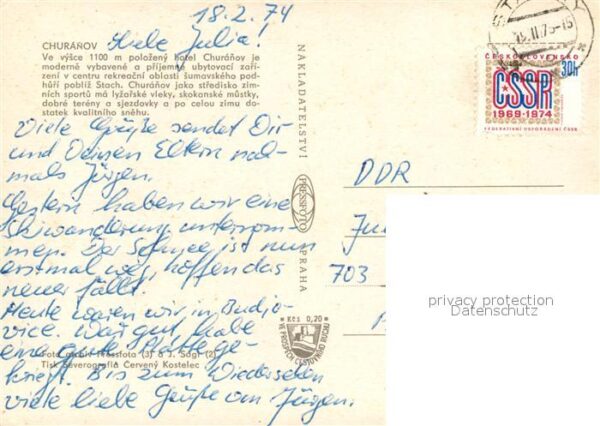 18.2.74
Liebe Julia!
CHURÁŇOV
Ve výšce 1100 m položený hotel Churáňov je
moderně vybavené a příjemné ubytovací zaří-
zení v centru rekreační oblasti šumavského pod-
hůří poblíž Stach. Churáňov jako středisko zim-
ních sportů má lyžařské vleky, skokanské můstky,
dobré terény a sjezdovky a po celou zimu do-
statek kvalitního sněhu.
Viele Grüße sendet Dir
und Deinen Eltern noch-
mals Jürgen.
Gestern haben wir eine
Skiwanderung unternom-
men. Der Schnee ist nun
erstmal weg, hoffen das
neuer fällt.
Heute waren wir in Budjo-
vice. War gut, habe
eine gute Platte ge-
kriegt. Bis zum Wiedersehen
viele liebe Grüße von Jürgen.
Foto archiv Pressfoto (3) a J. Ságl (2)
Tisk Severografia Červený Kostelec
NAKLADATELSTVÍ
PRESSFOTO
PRAHA
Kčs 0,20
VE PROSPĚCH CESTOVNÍHO RUCHU
ČESKOSLOVENSKO
30h
ČSSR
1969-1974
FEDERATIVNÍ USPOŘÁDÁNÍ ČSSR
DDR
703
privacy protection
Datenschutz